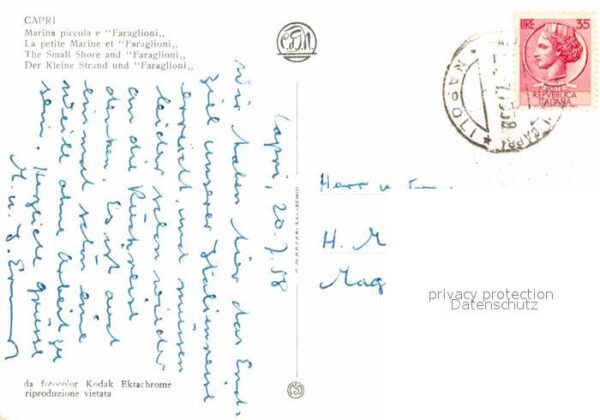 CAPRI
Marina piccola e "Faraglioni,,
La petite Marine et "Faraglioni,,
The Small Shore and "Faraglioni,,
Der Kleine Strand und "Faraglioni,,
LIRE 35
REPUBBLICA
ITALIANA
NAPOLI
CAPRI
Capri, 20.7.58
Wir haben hier das End-
ziel unserer Italienreise
erreicht, und müssen
leider schon wieder
an die Rückreise
denken. Es ist auch
einmal schön eine
Weile ohne Arbeit zu
sein. Herzliche Grüsse
Herr u Frau
H. M
Mag
privacy protection
Datenschutz
da fotocolor Kodak Ektachrome
riproduzione vietata